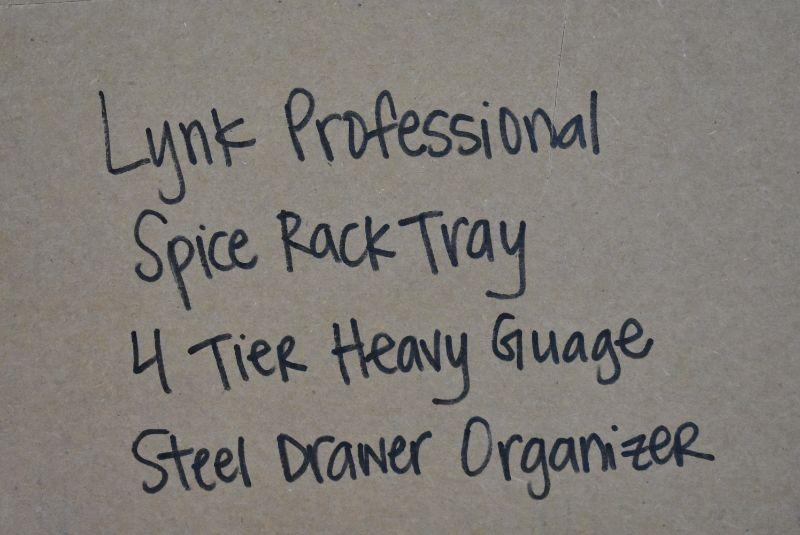 Lynk Professional
Spice Rack Tray
4 Tier Heavy Guage
Steel Drawer Organizer